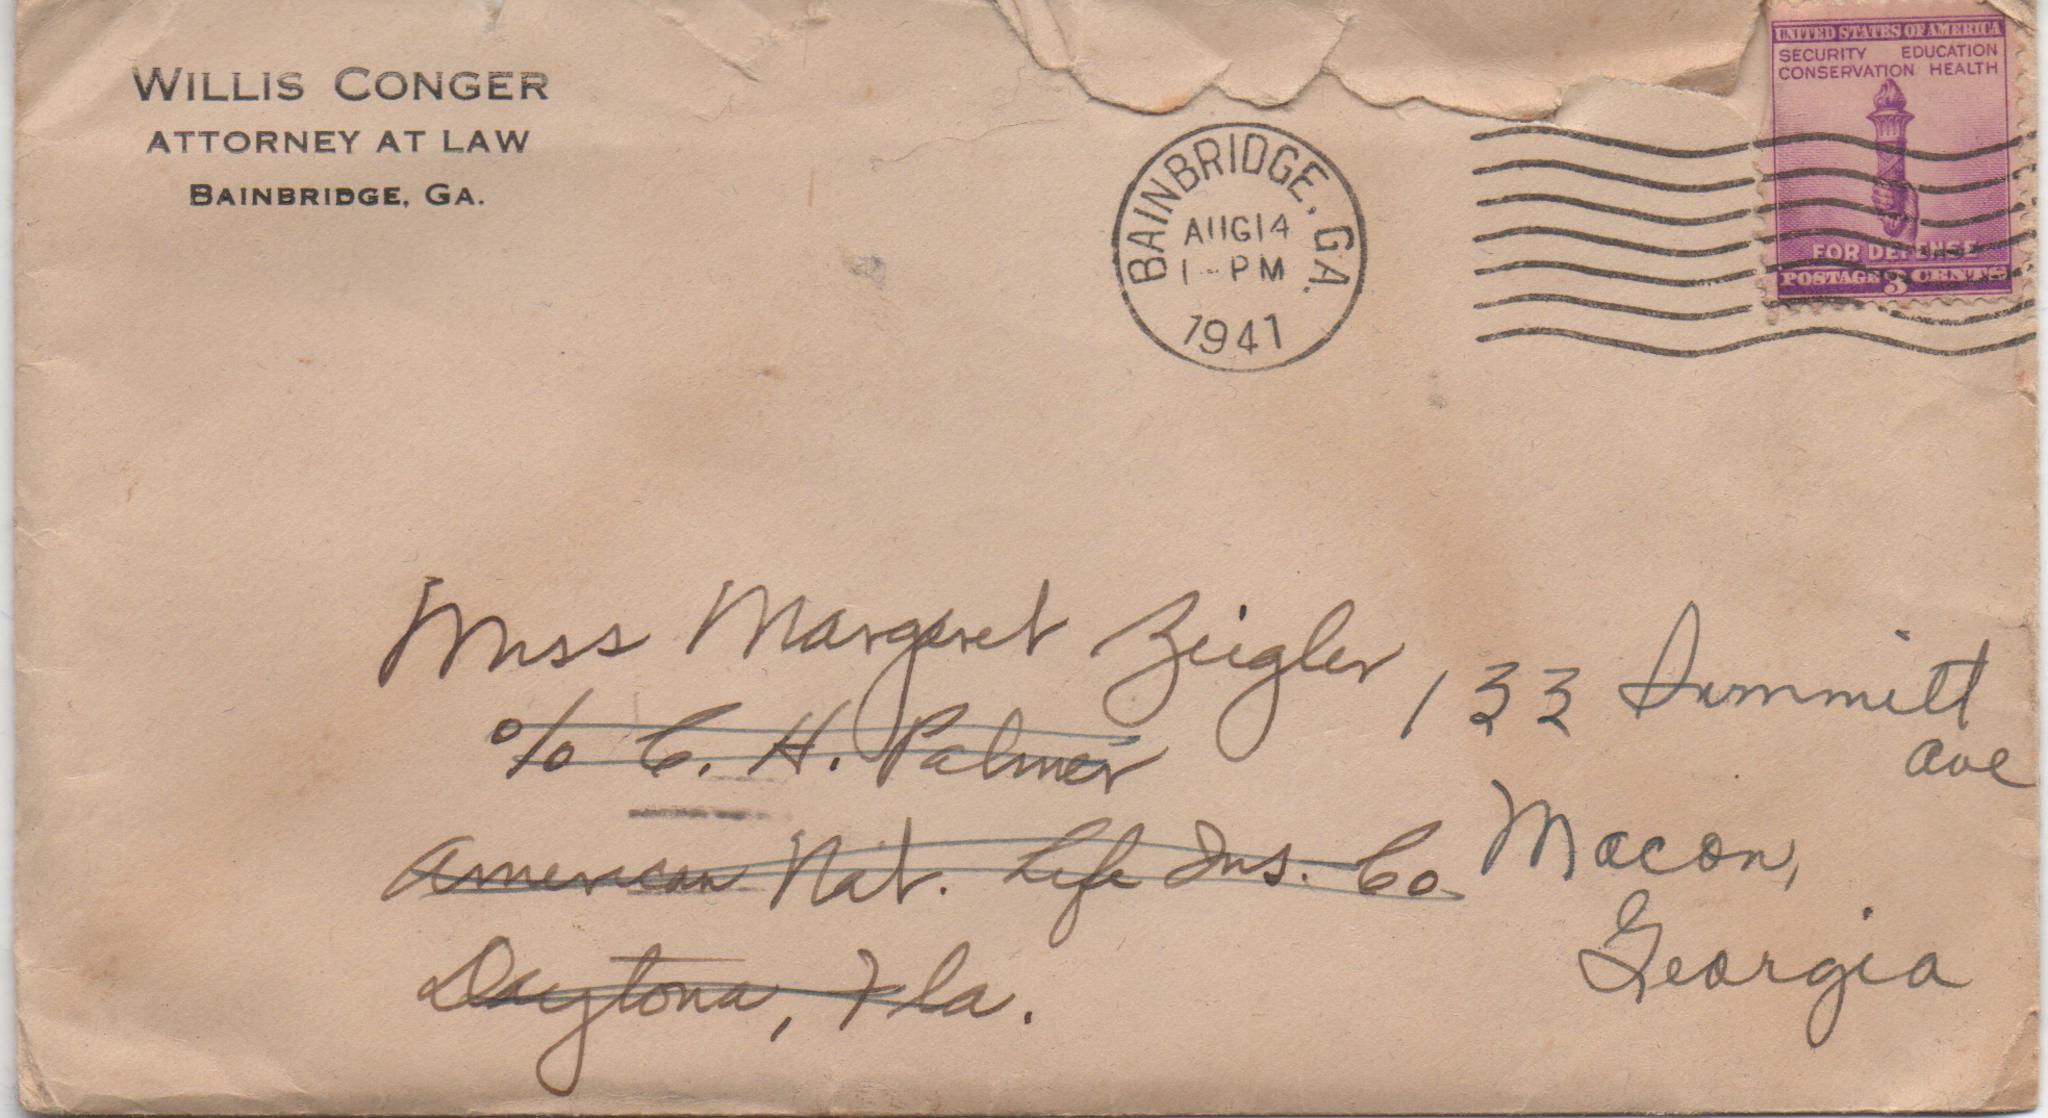 WILLIS CONGER
ATTORNEY AT LAW
BAINBRIDGE, GA.
BAINBRIDGE, GA.
AUG 14
1 - PM
1941
UNITED STATES OF AMERICA
SECURITY EDUCATION
CONSERVATION HEALTH
FOR DEFENSE
POSTAGE 3 CENTS
Miss Margaret Zeigler
c/o C. H. Palmer
American Nat. Life Ins. Co.
Daytona, Fla.
133 Summitt
ave
Macon,
Georgia